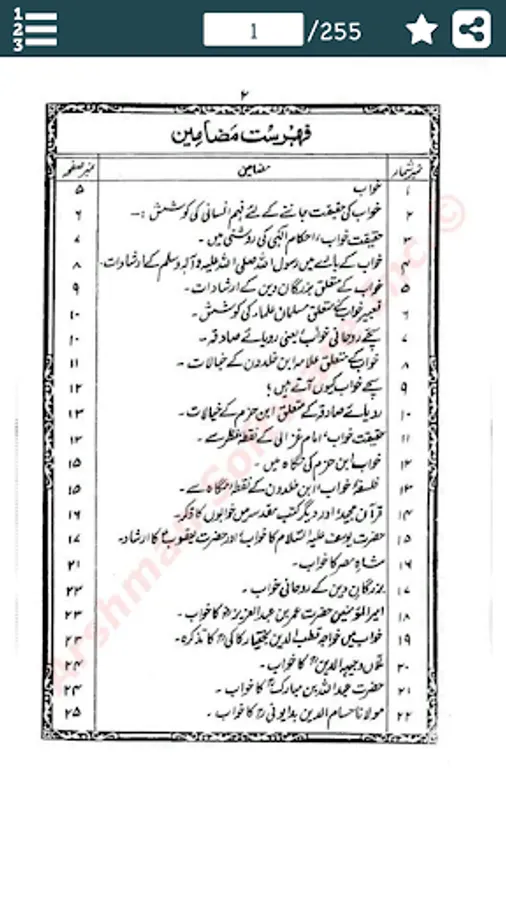 1
2
3
1 /255
۲
فہرست مضامین
نمبر شمار مضامین نمبر صفحہ
۱ خواب ۵
۲ خواب کی حقیقت جاننے کے لئے فہم انسانی کی کوشش :— ۶
۳ حقیقت خواب، احکام الٰہی کی روشنی میں - ۷
۴ خواب کے بارے میں رسول اللہ صلی اللہ علیہ وآلہ وسلم کے ارشادات - ۸
۵ خواب کے متعلق بزرگان دین کے ارشادات - ۹
۶ تعبیر خواب کے متعلق مسلمان علماء کی کوشش - ۱۰
۷ سچے روحانی خواب یعنی رویائے صادقہ - ۱۰
۸ خواب کے متعلق علامہ ابن خلدون کے خیالات - ۱۱
۹ سچے خواب کیوں آتے ہیں؟ ۱۲
۱۰ رویائے صادقہ کے متعلق ابن حزم کے خیالات - ۱۳
۱۱ حقیقت خواب، امام غزالی کے نقطۂ نظر سے - ۱۳
۱۲ خواب ابن حزم کی نگاہ میں - ۱۵
۱۳ فلسفۂ خواب، ابن خلدون کے نقطۂ نگاہ سے - ۱۵
۱۴ قرآن مجید اور دیگر کتب مقدسہ میں خوابوں کا ذکر - ۱۶
۱۵ حضرت یوسف علیہ السلام کا خواب اور حضرت یعقوبؑ کا ارشاد - ۱۷
۱۶ شاہ مصر کا خواب - ۲۱
۱۷ بزرگان دین کے روحانی خواب - ۲۳
۱۸ امیرالمؤمنین حضرت عمر بن عبدالعزیزؒ کا خواب - ۲۳
۱۹ خواب میں خواجہ قطب الدین بختیار کاکیؒ کا تذکرہ - ۲۳
۲۰ ملاں وجیہہ الدینؒ کا خواب - ۲۴
۲۱ حضرت عبداللہ بن مبارکؒ کا خواب - ۲۴
۲۲ مولانا حسام الدین بدایونیؒ کا خواب - ۲۵